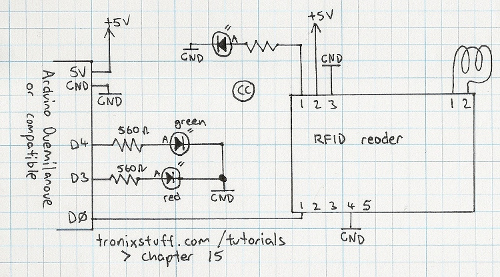 +5V
+5V
5V
GND
GND
GND
A
GND
CC
1 2 3
1 2
Arduino Duemilanove
or compatible
D4
560Ω
green
A
RFID reader
D3
560Ω
A
red
GND
DØ
1 2 3 4 5
GND
tronixstuff.com/tutorials
> chapter 15